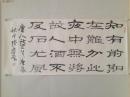 知有前期
在難分此
夜中無將
故人酒不
及石尤風